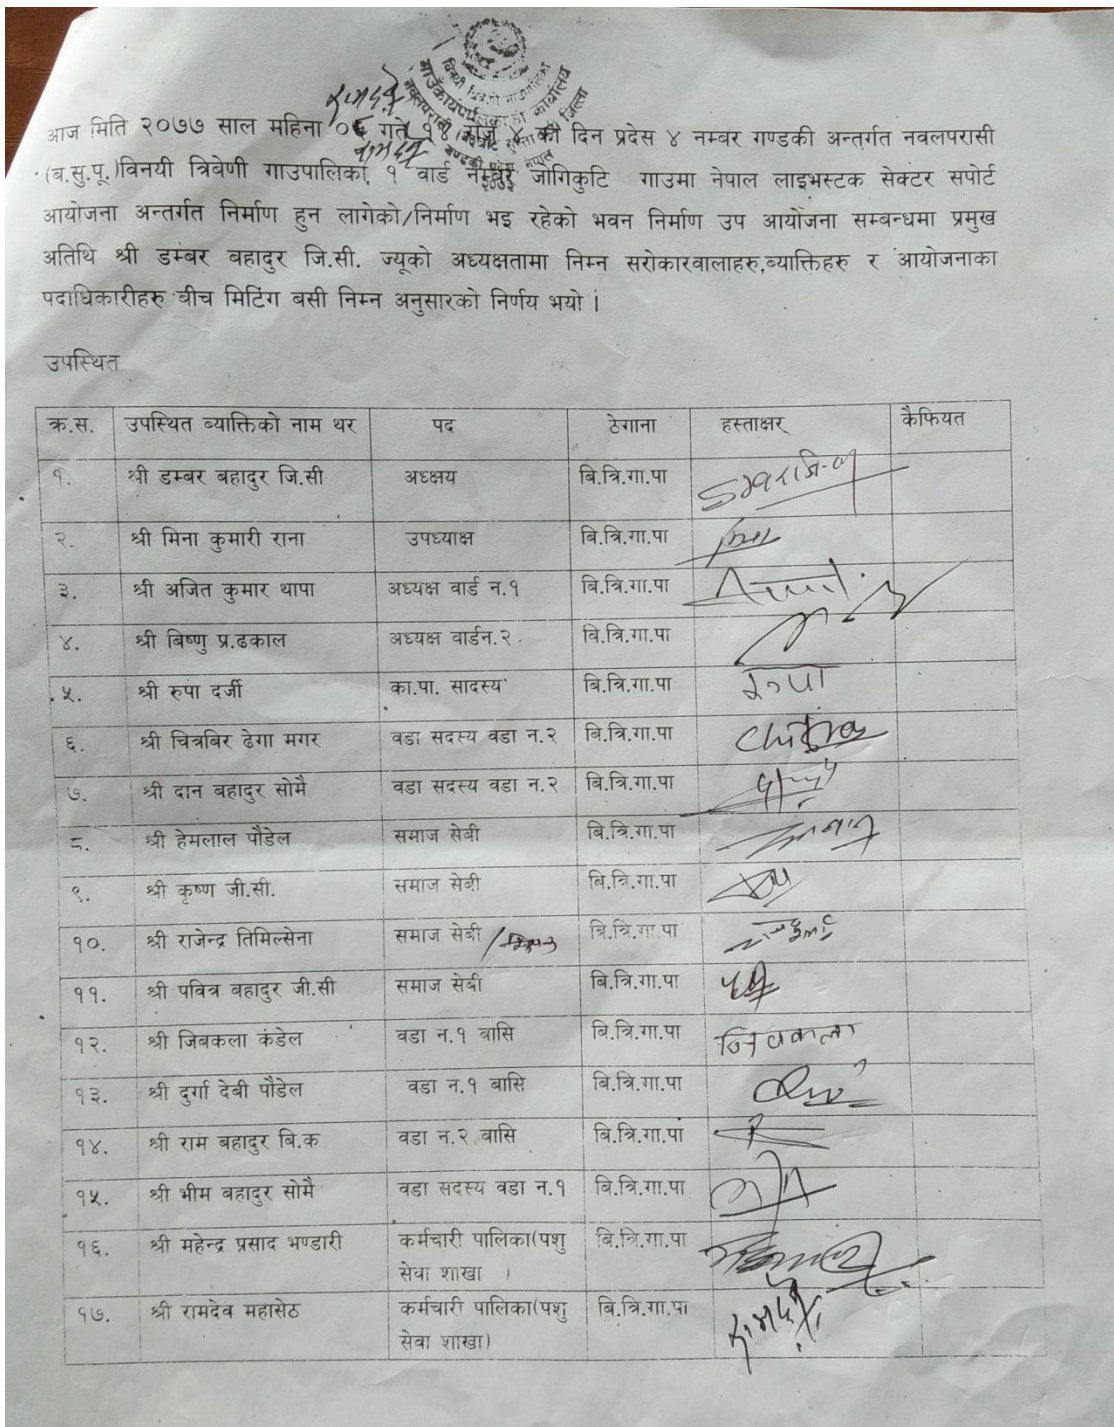 आज मिति २०७७ साल महिना ०६ गते १४ रोज ४ को दिन प्रदेस ४ नम्बर गण्डकी अन्तर्गत नवलपरासी
(ब.सु.पू.)विनयी त्रिबेणी गाउपालिका १ वार्ड नम्बर जोगिकुटि गाउमा नेपाल लाइभस्टक सेक्टर सपोर्ट
आयोजना अन्तर्गत निर्माण हुन लागेको/निर्माण भइ रहेको भवन निर्माण उप आयोजना सम्बन्धमा प्रमुख
अतिथि श्री डम्बर बहादुर जि.सी. ज्यूको अध्यक्षतामा निम्न सरोकारवालाहरु,ब्याक्तिहरु र आयोजनाका
पदाधिकारीहरु बीच मिटिंग बसी निम्न अनुसारको निर्णय भयो ।
उपस्थित
क्र.स. उपस्थित ब्याक्तिको नाम थर पद ठेगाना हस्ताक्षर कैफियत
१. श्री डम्बर बहादुर जि.सी अध्क्षय बि.त्रि.गा.पा
२. श्री मिना कुमारी राना उपध्याक्ष बि.त्रि.गा.पा
३. श्री अजित कुमार थापा अध्यक्ष वार्ड न.१ बि.त्रि.गा.पा
४. श्री बिष्णु प्र.ढकाल अध्यक्ष वार्डन.२ बि.त्रि.गा.पा
५. श्री रुपा दर्जी का.पा. सादस्य बि.त्रि.गा.पा रुपा
६. श्री चित्रबिर ढेगा मगर वडा सदस्य वडा न.२ बि.त्रि.गा.पा
७. श्री दान बहादुर सोमै वडा सदस्य वडा न.२ बि.त्रि.गा.पा
८. श्री हेमलाल पौडेल समाज सेबी बि.त्रि.गा.पा
९. श्री कृष्ण जी.सी. समाज सेबी बि.त्रि.गा.पा
१०. श्री राजेन्द्र तिमिल्सेना समाज सेबी बि.त्रि.गा.पा
११. श्री पवित्र बहादुर जी.सी समाज सेबी बि.त्रि.गा.पा
१२. श्री जिबकला कंडेल वडा न.१ बासि बि.त्रि.गा.पा जिवकला
१३. श्री दुर्गा देबी पौडेल वडा न.१ बासि बि.त्रि.गा.पा
१४. श्री राम बहादुर बि.क वडा न.२ बासि बि.त्रि.गा.पा
१५. श्री भीम बहादुर सोमै वडा सदस्य वडा न.१ बि.त्रि.गा.पा
१६. श्री महेन्द्र प्रसाद भण्डारी कर्मचारी पालिका(पशु बि.त्रि.गा.पा
सेवा शाखा )
१७. श्री रामदेव महासेठ कर्मचारी पालिका(पशु बि.त्रि.गा.पा
सेवा शाखा)